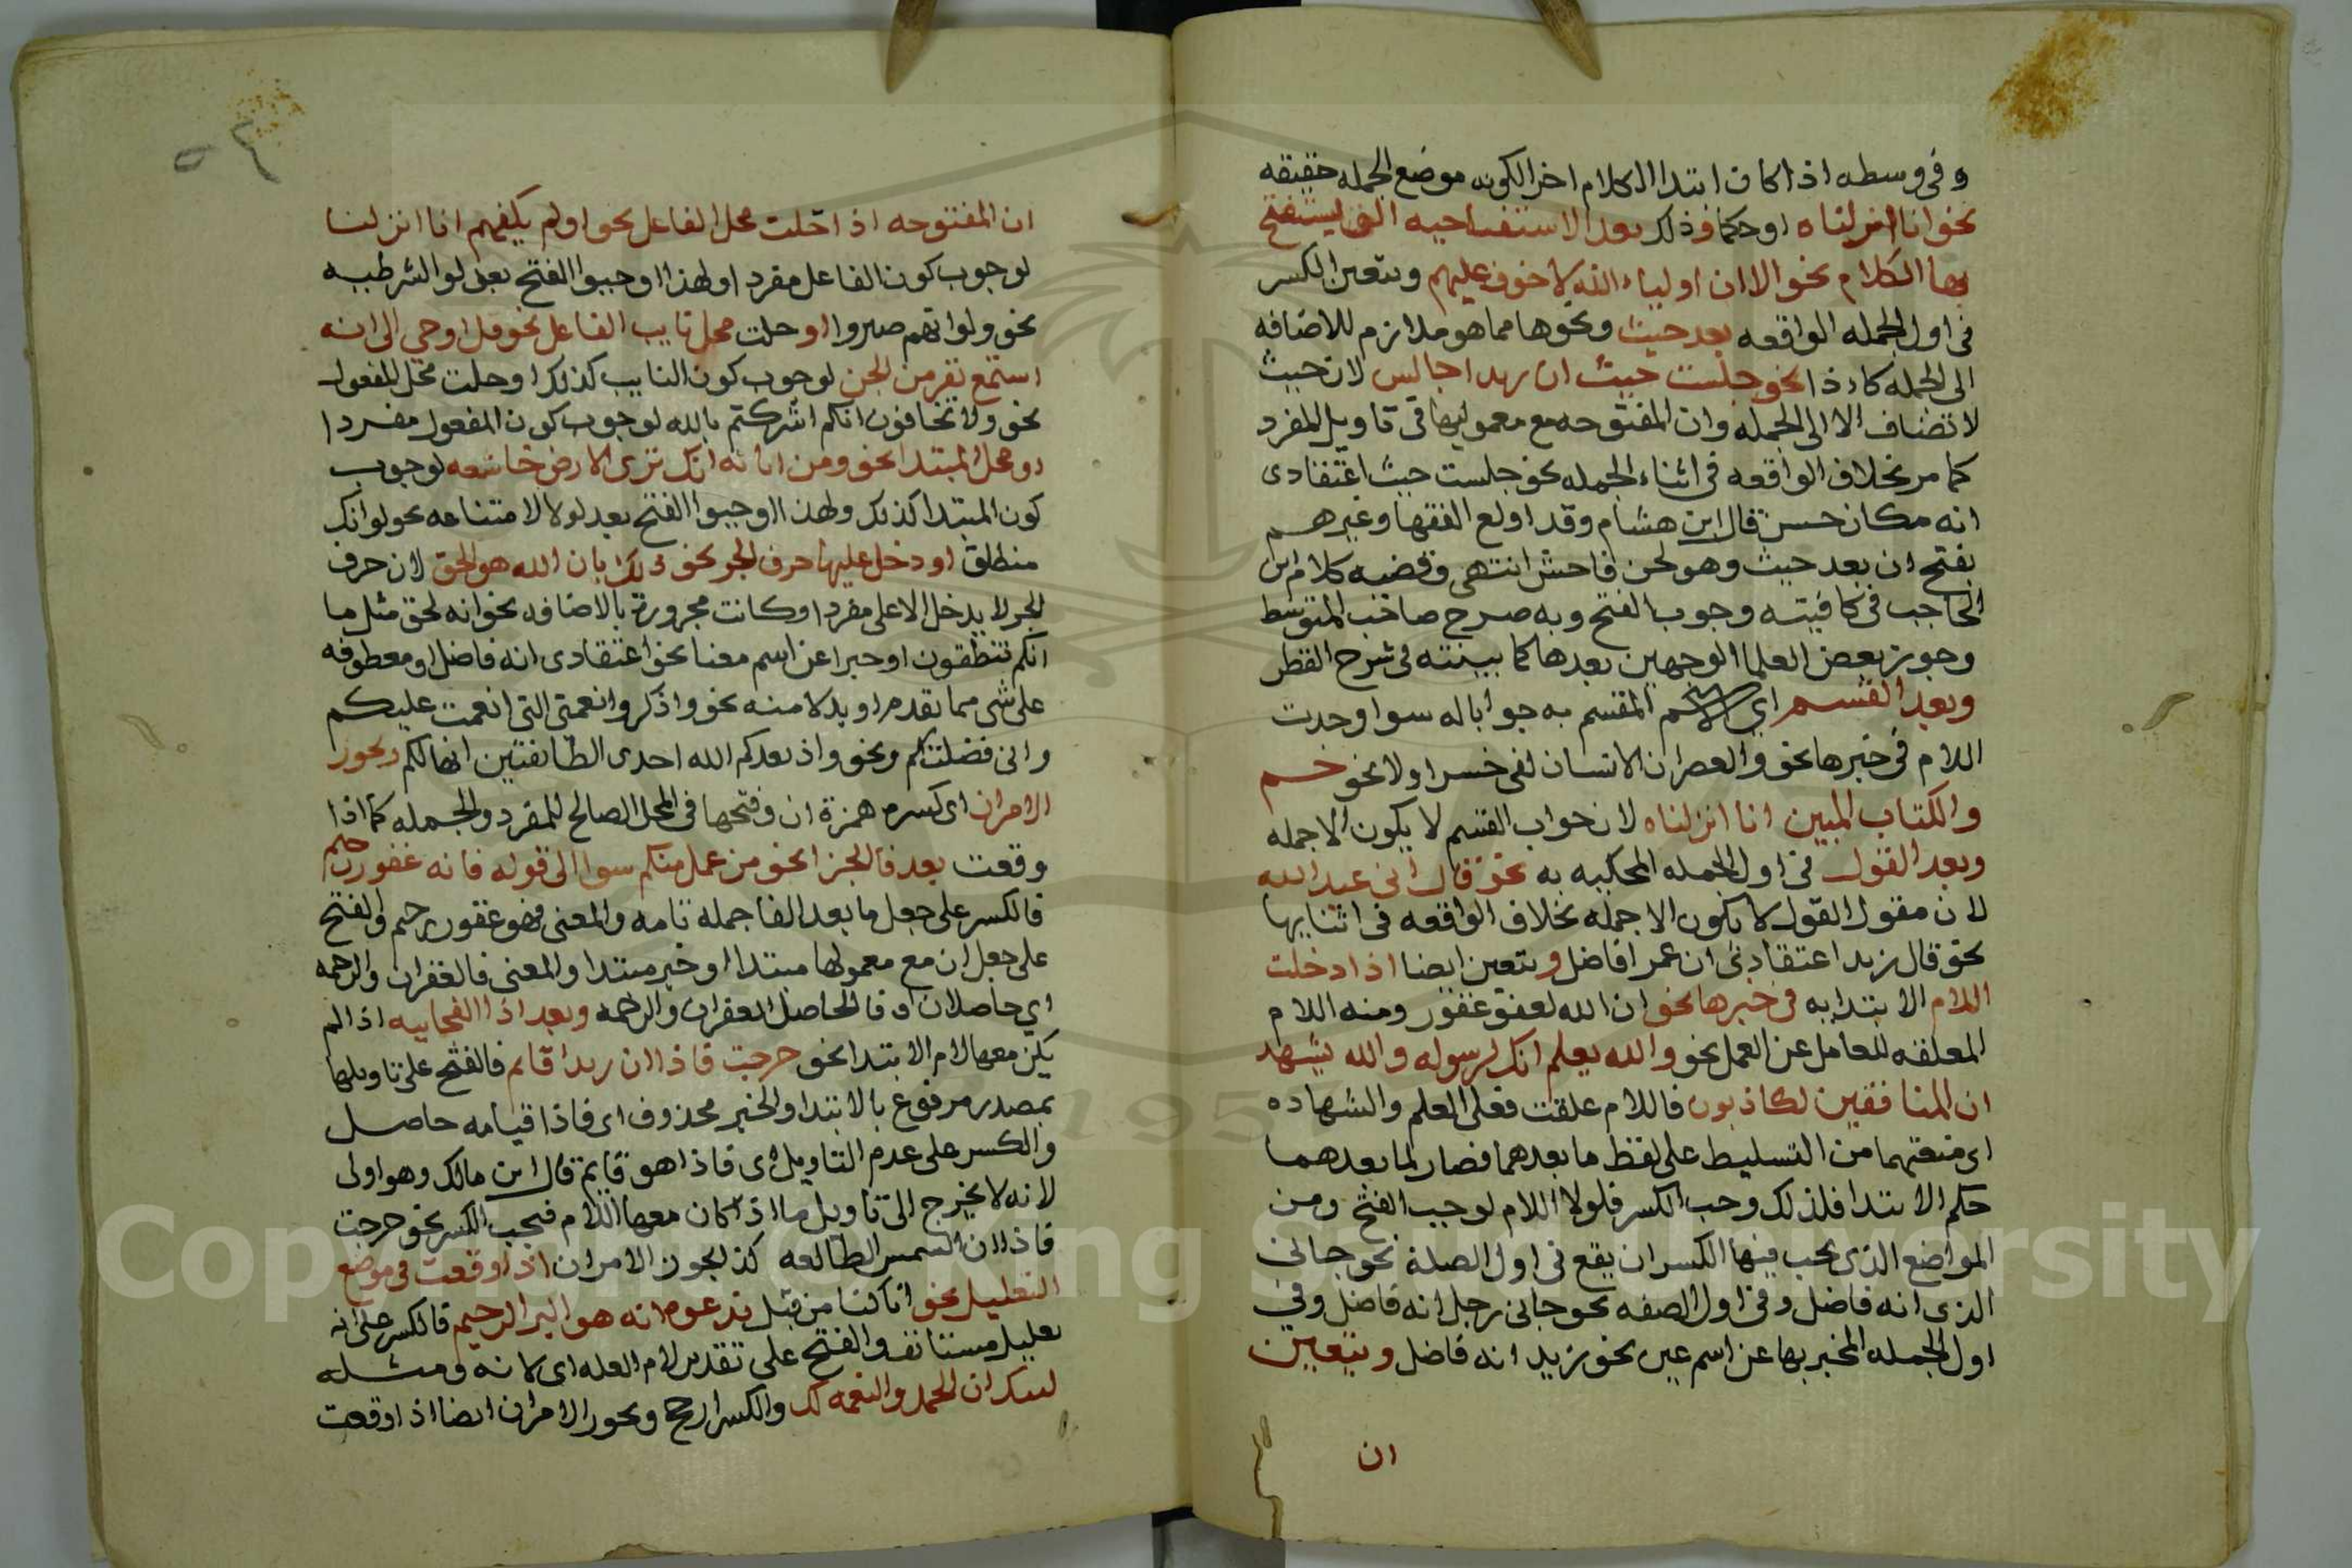 وفي وسطه اذا كان ابتدا الكلام اخر الكونه موضع الجمله حقيقه
نحو انا انزلناه او حكما وذلك بعد الا استفتاحيه التي يستفتح
بها الكلام نحو الا ان اوليا الله لا خوف عليهم ويتعين الكسر
في اول الجمله الواقعه بعد حيث ونحوها مما هو ملازم للاضافه
الى الجمله كاءذا نحو جلست حيث ان زيدا جالس لان حيث
لا تضاف الا الى الجمله وان المفتوحه مع معموليها في تاويل المفرد
كما مر بخلاف الواقعه في اثناء الجمله نحو جلست حيث اعتقادى
انه مكان حسن قال ابن هشام وقد اولع الفقها وغيرهم
بفتح ان بعد حيث وهو لحن فاحش انتهى وقضيه كلام ابن
الحاجب في كافيته وجوب الفتح وبه صرح صاحب المتوسط
وجوز بعض العلما الوجهين بعدها كما بينته في شرح القطر
وبعد القسم اي المقسم به جوابا له سوا وجدت
اللام في خبرها نحو والعصر ان الانسان لفي خسر اولا نحو حم
والكتاب المبين انا انزلناه لان جواب القسم لا يكون الا جمله
وبعد القول في اول الجمله المحكيه به نحو قال اني عبد الله
لان مقول القول لا يكون الا جمله بخلاف الواقعه في اثنايها
نحو قال زيد اعتقادي ان عمرا فاضل ويتعين ايضا اذا دخلت
اللام الابتدا به في خبرها نحو ان الله لعفو غفور ومنه اللام
المعلقه للعامل عن العمل نحو والله يعلم انك لرسوله والله يشهد
ان المنافقين لكاذبون فاللام علقت فعلى العلم والشهاده
اى منعتهما من التسليط على لفظ ما بعدهما فصار لما بعدهما
حكم الابتدا فلذلك وجب الكسر فلولا اللام لوجب الفتح ومن
المواضع الذى يجب فيها الكسر ان يقع في اول الصلة نحو جاني
الذى انه فاضل وفى اول الصفه نحو جانى رجل انه فاضل وفي
اول الجمله المخبر بها عن اسم عين نحو زيد انه فاضل ويتعين
ان
ان المفتوحه اذا حلت محل الفاعل نحو اولم يكفهم انا انزلنا
لوجوب كون الفاعل مفردا ولهذا اوجبوا الفتح بعد لو الشرطيه
نحو ولو انهم صبروا او حلت محل نايب الفاعل نحو قل اوحي الي انه
استمع نفر من الجن لوجوب كون النايب كذلك او حلت محل المفعول
نحو ولا تخافون انكم اشركتم بالله لوجوب كون المفعول مفردا
او محل المبتدا نحو ومن اياته انك ترى الارض خاشعه لوجوب
كون المبتدا كذلك ولهذا اوجبوا الفتح بعد لولا الامتناعه نحو لو انك
منطلق او دخل عليها حرف الجر نحو ذلك بان الله هو الحق لان حرف
الجر لا يدخل الا على مفرد او كانت مجرورة بالاضافه نحو انه لحق مثل ما
انكم تنطقون او خبرا عن اسم معنا نحو اعتقادى انه فاضل او معطوفه
على شى مما تقدم او بدلا منه نحو واذكروا نعمتى التي انعمت عليكم
وانى فضلتكم ونحو واذ يعدكم الله احدى الطائفتين انها لكم ويجوز
الامران اى كسر همزة ان وفتحها في المحل الصالح للمفرد والجمله كما اذا
وقعت بعد فا الجزا نحو من عمل منكم سوا الى قوله فانه غفور رحيم
فالكسر على جعل ما بعد الفا جمله تامه والمعنى فهو غفور رحيم والفتح
على جعل ان مع معمولها مبتدا او خبر مبتدا والمعنى فالغفران والرحمه
اي حاصلان او فالحاصل الغفران والرحمه وبعد اذا الفجاييه اذا لم
يكن معها لام الابتدا نحو خرجت فاذا ان زيدا قايم فالفتح على تاويلها
بمصدر مرفوع بالابتدا والخبر محذوف اى فاذا قيامه حاصل
والكسر على عدم التاويل اى فاذا هو قايم قال ابن مالك وهو اولى
لانه لا يخرج الى تاويل ما اذا كان معها اللام فيجب الكسر نحو خرجت
فاذا ان الشمس لطالعه كذا يجوز الامران اذا وقعت في موضع
التعليل نحو انا كنا من قبل ندعوه انه هو البر الرحيم فالكسر على انه
تعليل مستانف والفتح على تقدير لام العله اى لانه ومثله
لبيك ان الحمد والنعمه لك والكسر ارجح ويجوز الامران ايضا اذا وقعت
Copyright © King Saud University
195